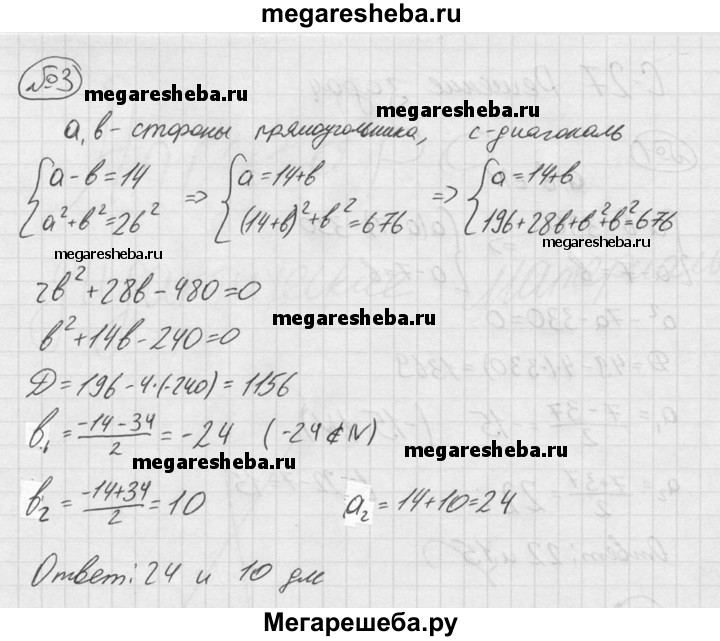 megaresheba.ru
№3
megaresheba.ru megaresheba.ru
a, в - стороны прямоугольника, c - диагональ
{a - в = 14 => {a = 14 + в => {a = 14 + в
{a² + в² = 26² {(14 + в)² + в² = 676 {196 + 28в + в² + в² = 676
megaresheba.ru megaresheba.ru
2в² + 28в - 480 = 0
megaresheba.ru
в² + 14в - 240 = 0
Д = 196 - 4·(-240) = 1156
в₁ = (-14 - 34)/2 = -24 (-24 ∉ N)
megaresheba.ru megaresheba.ru
в₂ = (-14 + 34)/2 = 10 a₂ = 14 + 10 = 24
Ответ: 24 и 10 дм
Мегарешеба.ру